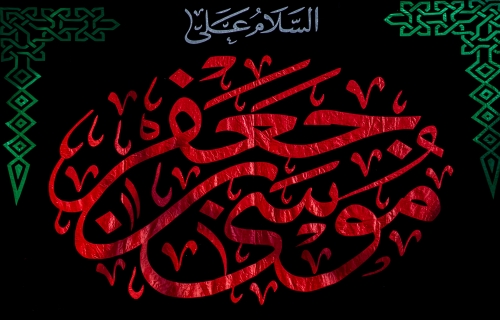 السَّلَامُ عَلَى
مُوسَى بْنِ جَعْفَر